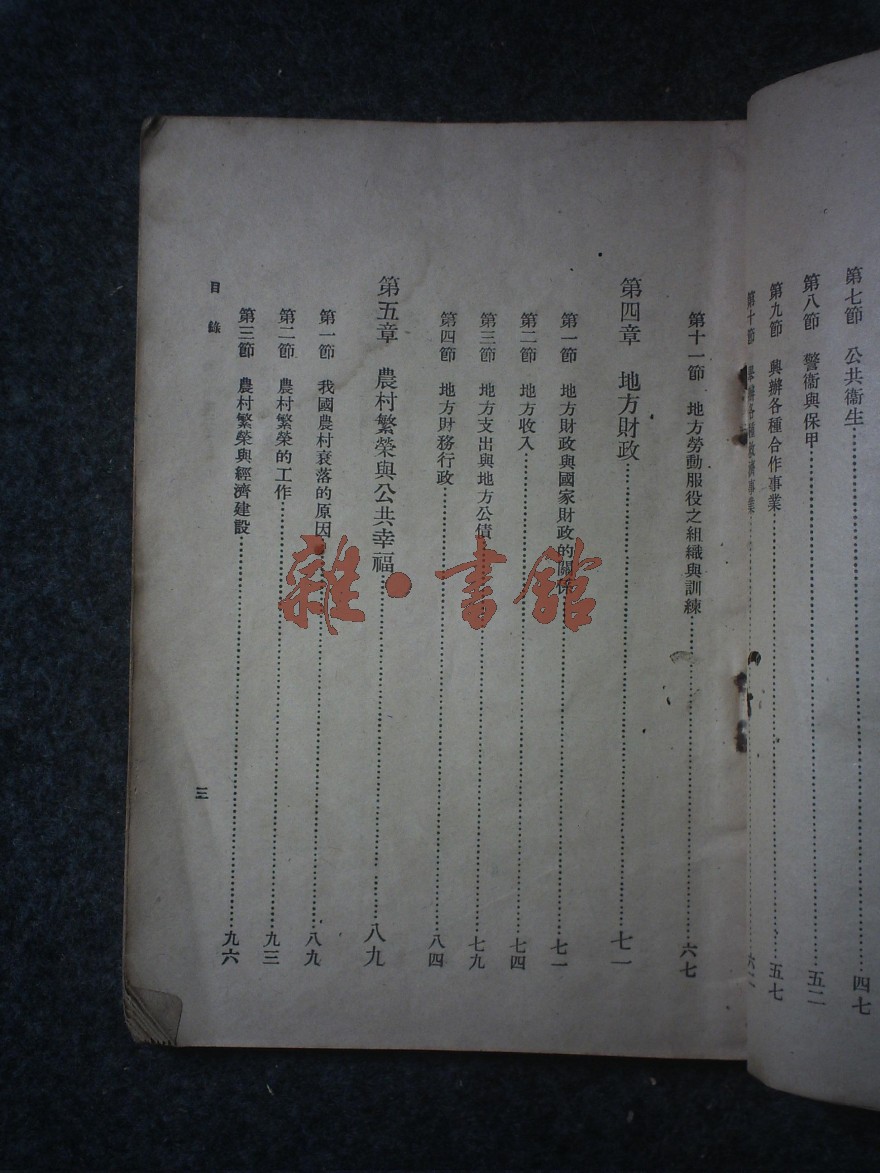 第七節　公共衞生……四七
第八節　警衞與保甲……五二
第九節　興辦各種合作事業……五七
第十節　各種救濟事業……六
第十一節　地方勞動服役之組織與訓練……六七
第四章　地方財政……七一
第一節　地方財政與國家財政的關係……七一
第二節　地方收入……七四
第三節　地方支出與地方公債……七九
第四節　地方財務行政……八四
第五章　農村繁榮與公共幸福……八九
第一節　我國農村衰落的原因……八九
第二節　農村繁榮的工作……九三
第三節　農村繁榮與經濟建設……九六
目錄
三
雜·書館